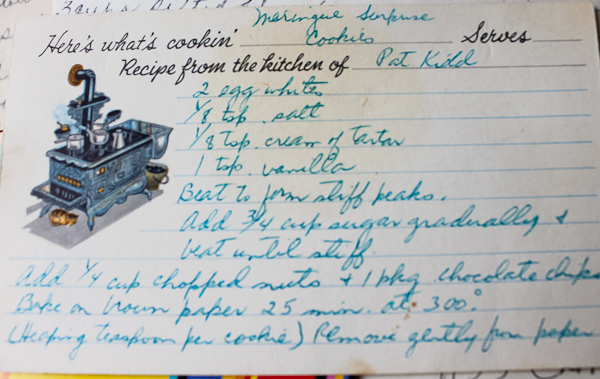 Meringue Surprise
Here's what's cookin' Cookies Serves
Recipe from the kitchen of Pat Kidd
2 egg whites
1/8 tsp. salt
1/8 tsp. cream of tartar
1 tsp. vanilla
Beat to form stiff peaks.
Add 3/4 cup sugar gradually &
beat until stiff.
Add 1/4 cup chopped nuts + 1 pkg. chocolate chips
Bake on brown paper 25 min. at 300°
(Heaping teaspoon per cookie) Remove gently from paper